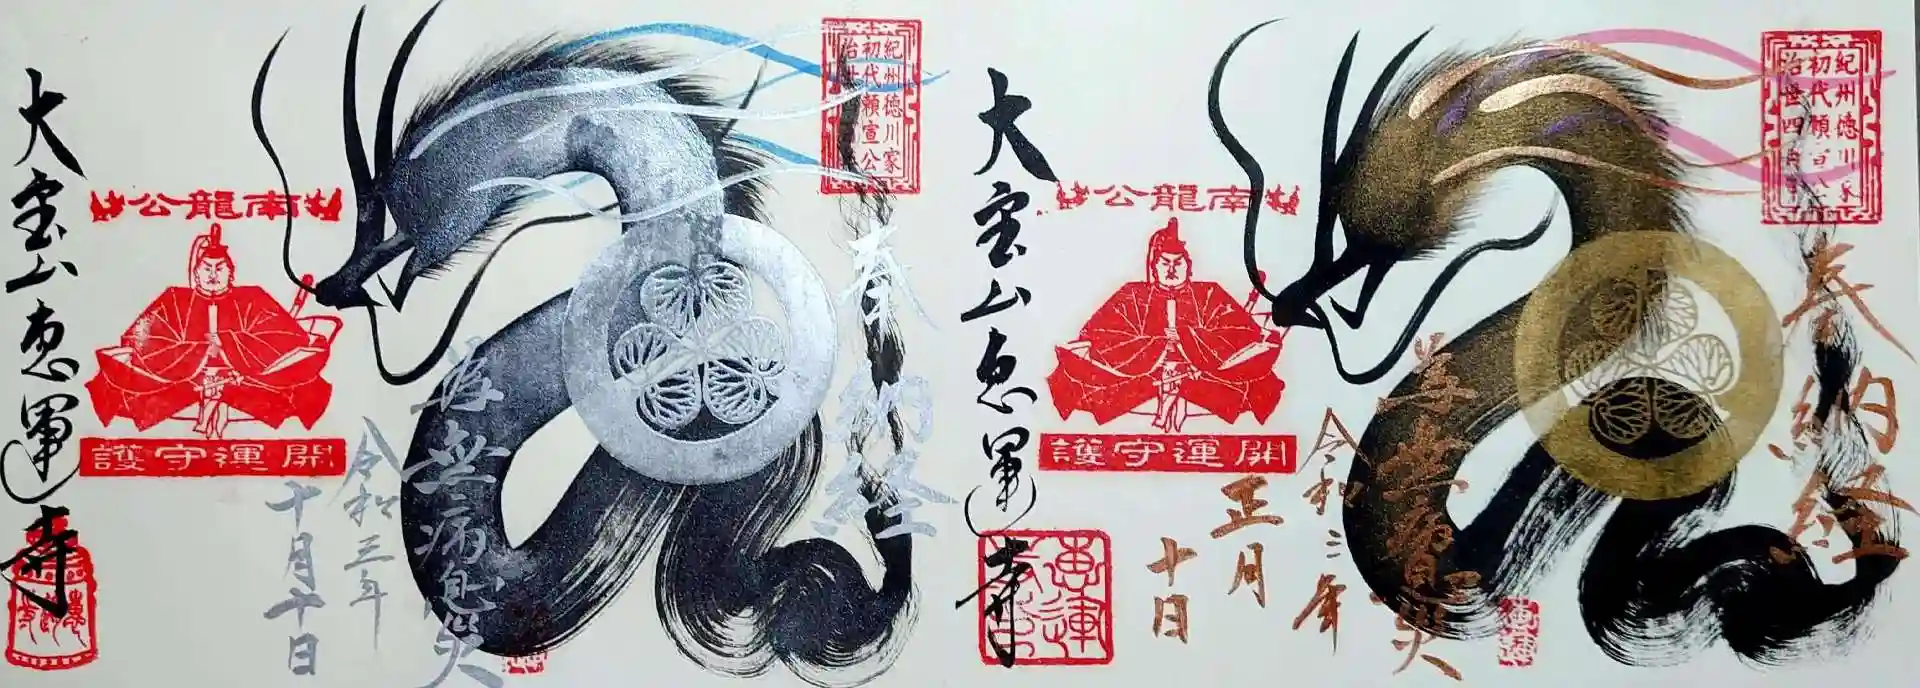 紀州徳川家
初代頼宣公
治世
奉納経
為無病息災
令和三年
十月十日
南龍公
開運守護
大宝山恵運寺
紀州徳川家
初代頼宣公
治世四百年
奉納経
無病息災
令和三年
正月
十日
南龍公
開運守護
大宝山恵運寺
恵運寺